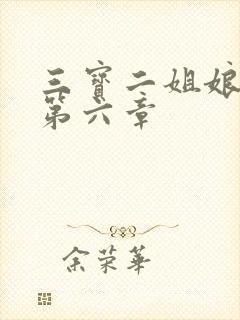 三寶二姐娘
第六章
余荣華